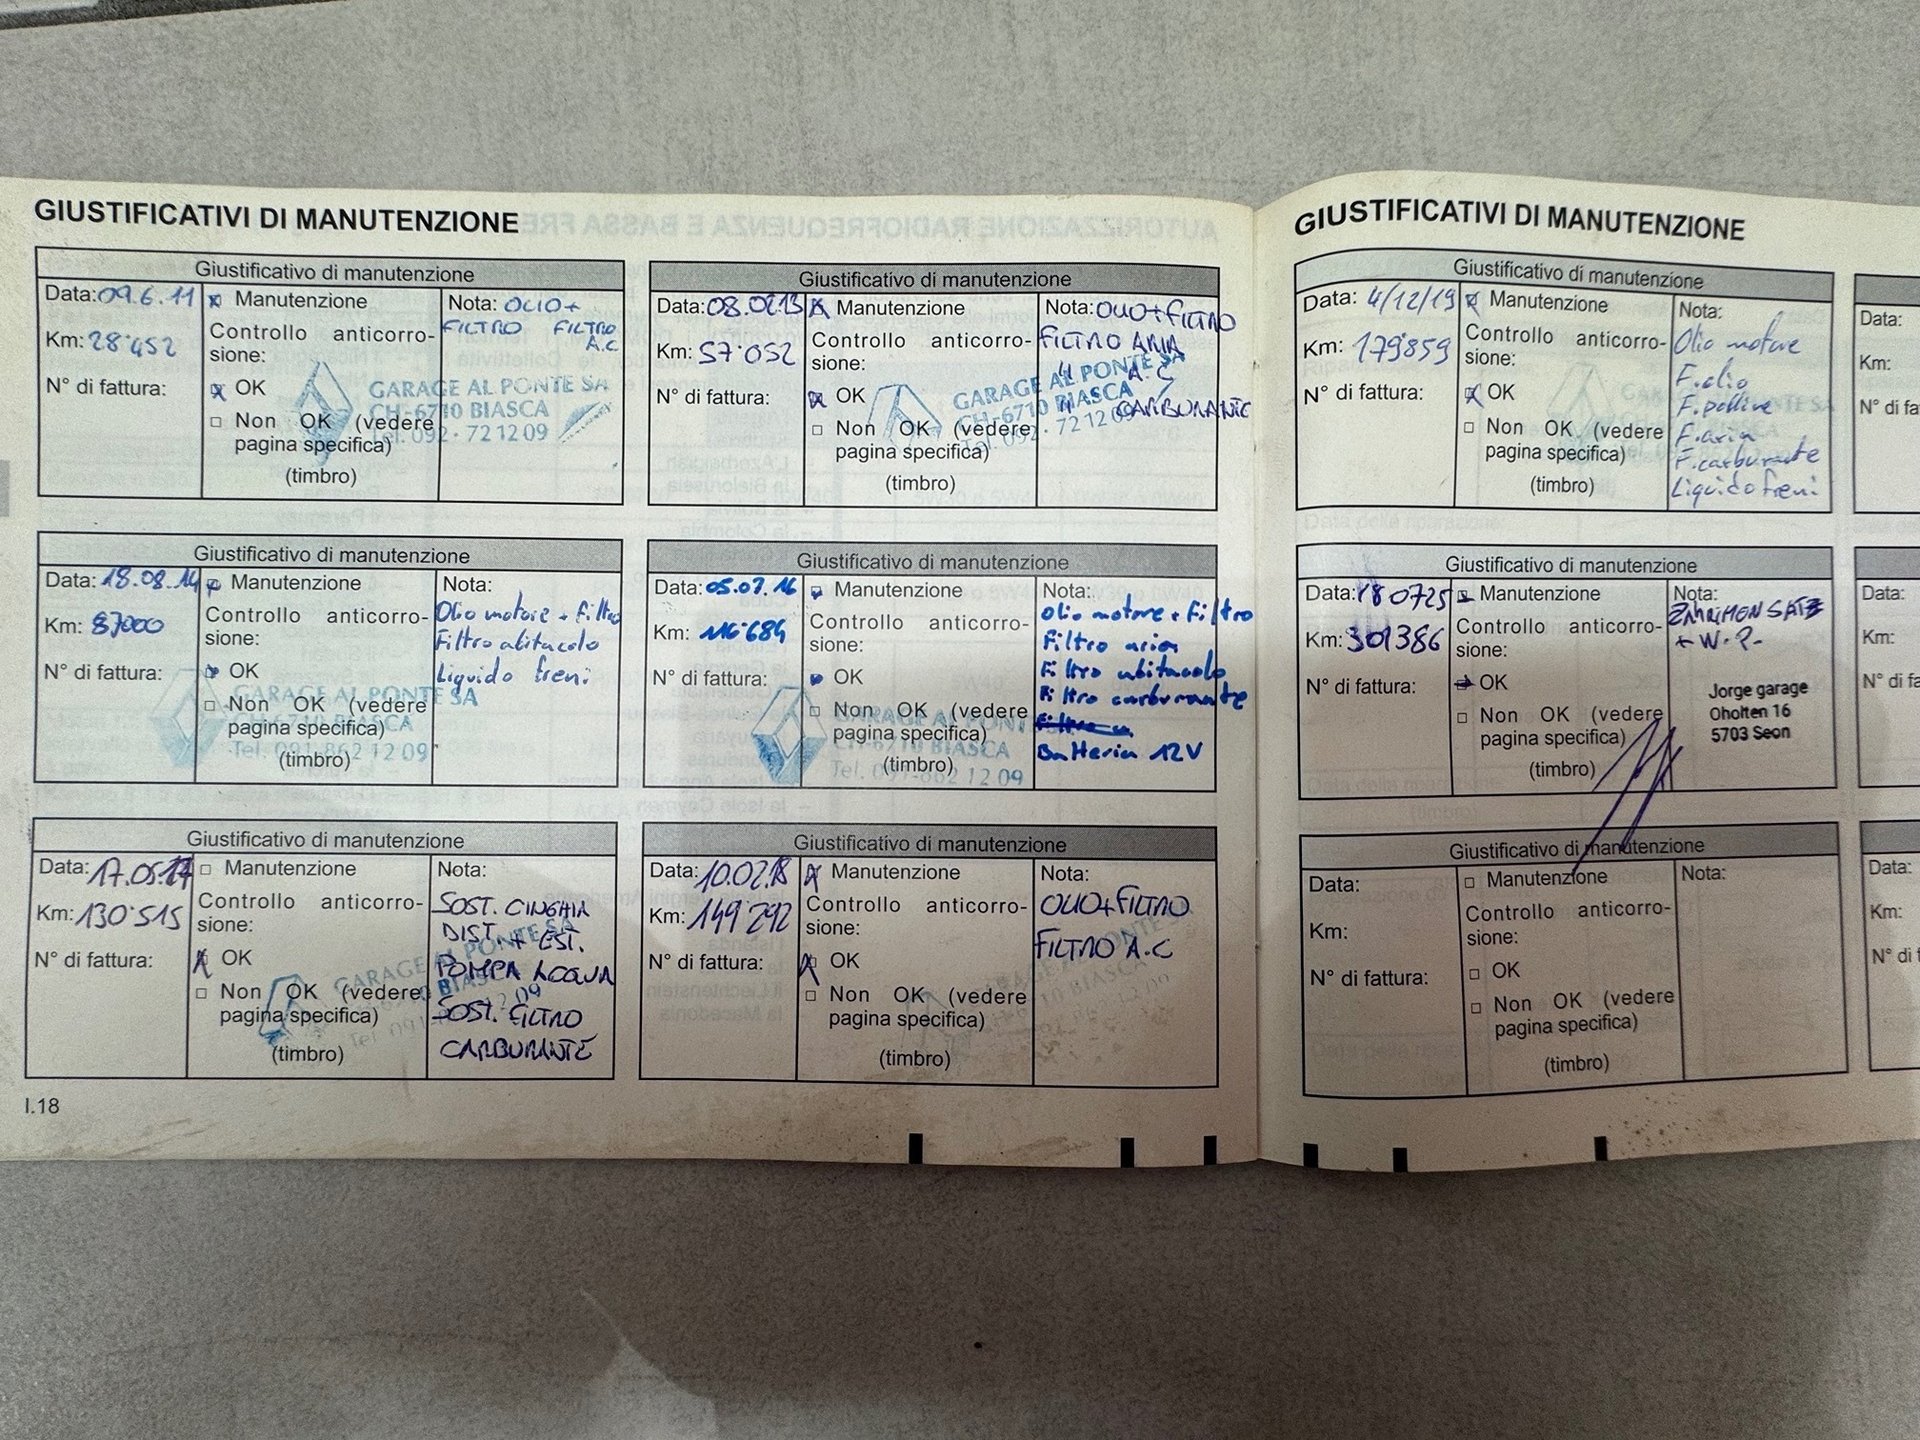 GIUSTIFICATIVI DI MANUTENZIONE
Giustificativo di manutenzione
Data: 09.6.11
Km: 28'452
N° di fattura:
Manutenzione
Controllo anticorro-
sione:
OK
Non OK (vedere
pagina specifica)
(timbro)
Nota: OLIO+
FILTRO FILTRO
A.C
GARAGE AL PONTE SA
CH-6710 BIASCA
Tel. 092 · 72 12 09
Giustificativo di manutenzione
Data: 08.02.13
Km: 57'052
N° di fattura:
Manutenzione
Controllo anticorro-
sione:
OK
Non OK (vedere
pagina specifica)
(timbro)
Nota: OLIO+FILTRO
FILTRO ARIA
" A.C
" CARBURANTE
GARAGE AL PONTE SA
CH-6710 BIASCA
Tel. 092 · 72 12 09
Giustificativo di manutenzione
Data: 18.08.14
Km: 87000
N° di fattura:
Manutenzione
Controllo anticorro-
sione:
OK
Non OK (vedere
pagina specifica)
(timbro)
Nota:
Olio motore + Filtro
Filtro abitacolo
Liquido freni
GARAGE AL PONTE SA
CH-6710 BIASCA
Tel. 091-862 12 09
Giustificativo di manutenzione
Data: 05.07.16
Km: 116'684
N° di fattura:
Manutenzione
Controllo anticorro-
sione:
OK
Non OK (vedere
pagina specifica)
(timbro)
Nota:
Olio motore + Filtro
Filtro aria
Filtro abitacolo
Filtro carburante
Batteria 12V
GARAGE AL PONTE
CH-6710 BIASCA
Tel. 091-862 12 09
Giustificativo di manutenzione
Data: 17.05.17
Km: 130'515
N° di fattura:
Manutenzione
Controllo anticorro-
sione:
OK
Non OK (vedere
pagina specifica)
(timbro)
Nota:
SOST. CINGHIA
DIST. + EST.
POMPA ACQUA
SOST. FILTRO
CARBURANTE
GARAGE AL PONTE SA
BIASCA
Giustificativo di manutenzione
Data: 10.02.18
Km: 149'292
N° di fattura:
Manutenzione
Controllo anticorro-
sione:
OK
Non OK (vedere
pagina specifica)
(timbro)
Nota:
OLIO+FILTRO
FILTRO A.C
BIASCA
I.18
GIUSTIFICATIVI DI MANUTENZIONE
Giustificativo di manutenzione
Data: 4/12/19
Km: 179859
N° di fattura:
Manutenzione
Controllo anticorro-
sione:
OK
Non OK (vedere
pagina specifica)
(timbro)
Nota:
Olio motore
F. olio
F. polline
F. aria
F. carburante
Liquido freni
Giustificativo di manutenzione
Data: 180725
Km: 301386
N° di fattura:
Manutenzione
Controllo anticorro-
sione:
OK
Non OK (vedere
pagina specifica)
(timbro)
Nota:
+ W.P.
Jorge garage
Oholten 16
5703 Seon
Giustificativo di manutenzione
Data:
Km:
N° di fattura:
Manutenzione
Controllo anticorro-
sione:
OK
Non OK (vedere
pagina specifica)
(timbro)
Nota:
Data:
Km:
N° di fa
Data:
Km:
N° di fa
Data:
Km:
N° di f